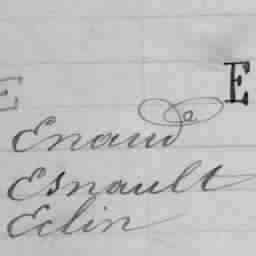 E
E
Enaud
Esnault
Eclin